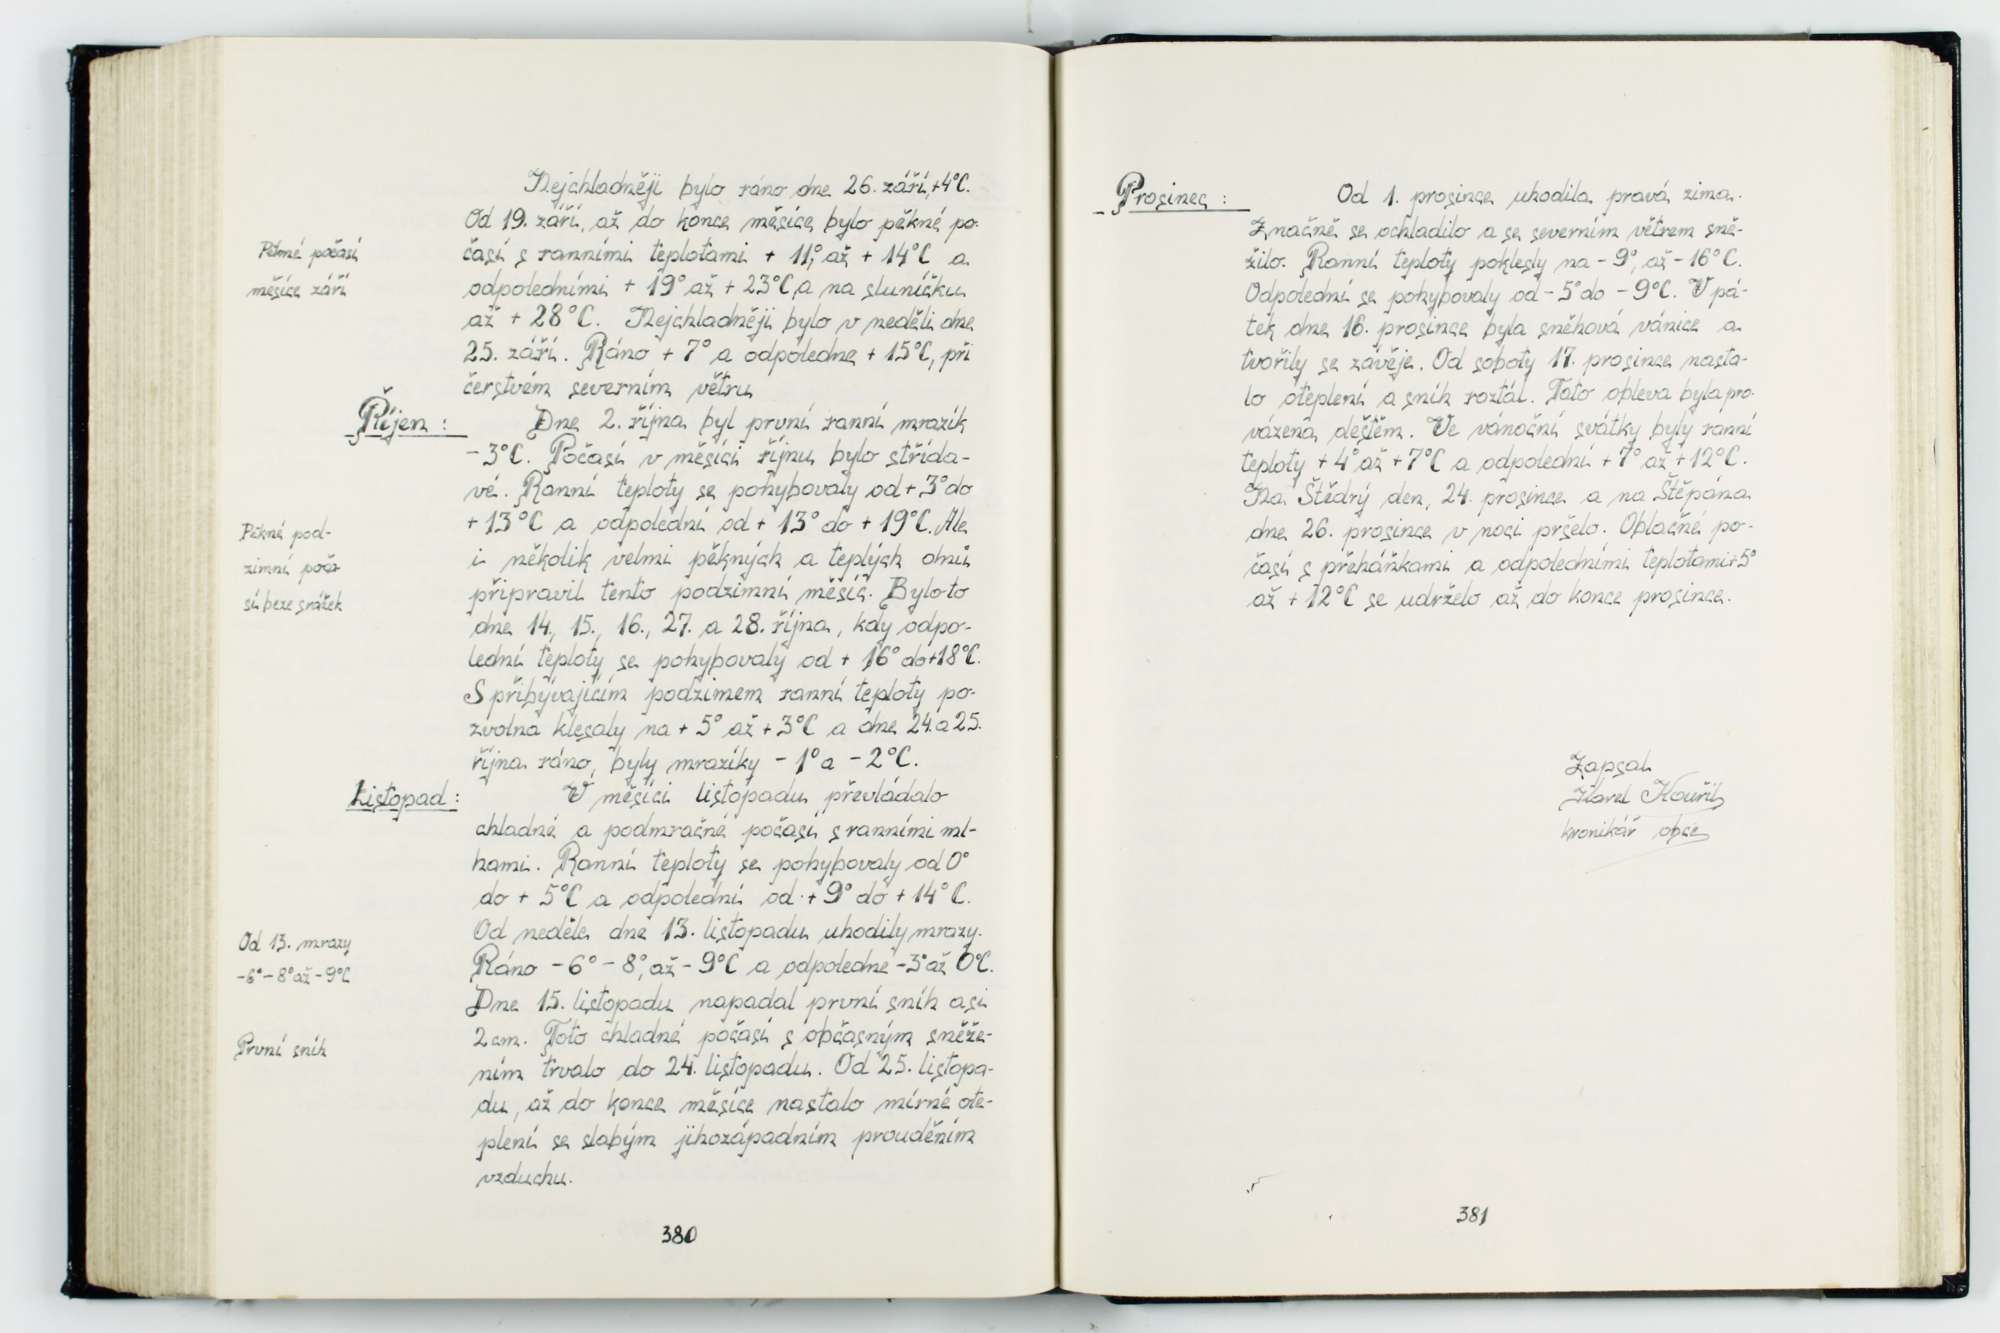 Nejchladněji bylo ráno dne 26. září, +4°C.
Od 19. září, až do konce měsíce bylo pěkné po-
časí s ranními teplotami + 11°, až + 14°C a
odpoledními + 19° až + 23°C a na sluníčku
až + 28°C. Nejchladněji bylo v neděli dne
25. září. Ráno + 7° a odpoledne + 15°C, při
čerstvém severním větru
Pěkné počasí
měsíce září
Říjen :
Dne 2. října byl první ranní mrazík
- 3°C. Počasí v měsíci říjnu bylo střída-
vé. Ranní teploty se pohybovaly od + 3° do
+ 13°C a odpolední od + 13° do + 19°C. Ale
i několik velmi pěkných a teplých dnů
připravil tento podzimní měsíc. Bylo to
dne 14., 15., 16., 27. a 28. října, kdy odpo-
lední teploty se pohybovaly od + 16° do +18°C.
S přibývajícím podzimem ranní teploty po-
zvolna klesaly na + 5° až + 3°C a dne 24. a 25.
října ráno, byly mrazíky - 1° a - 2°C.
Pěkné pod-
zimní poča-
sí beze srážek
Listopad :
V měsíci listopadu převládalo
chladné a podmračné počasí s ranními ml-
hami. Ranní teploty se pohybovaly od 0°
do + 5°C a odpolední od + 9° do + 14°C.
Od neděle dne 13. listopadu uhodily mrazy.
Ráno - 6° - 8°, až - 9°C a odpoledne - 3° až 0°C.
Dne 15. listopadu napadal první sníh asi
2 cm. Toto chladné počasí s občasným sněže-
ním trvalo do 24. listopadu. Od 25. listopa-
du, až do konce měsíce nastalo mírné ote-
plení se slabým jihozápadním prouděním
vzduchu.
Od 13. mrazy
-6° - 8° až - 9°C
První sníh
380
Prosinec :
Od 1. prosince uhodila pravá zima.
Značně se ochladilo a se severním větrem sně-
žilo. Ranní teploty poklesly na - 9°, až - 16°C.
Odpolední se pohybovaly od - 5° do - 9°C. V pá-
tek dne 16. prosince byla sněhová vánice a
tvořily se závěje. Od soboty 17. prosince nasta-
lo oteplení a sníh roztál. Tato obleva byla pro-
vázena deštěm. Ve vánoční svátky byly ranní
teploty + 4° až + 7°C a odpolední + 7° až + 12°C.
Na Štědrý den, 24. prosince a na Štěpána
dne 26. prosince v noci pršelo. Oblačné po-
časí s přeháňkami a odpoledními teplotami +5°
až + 12°C se udrželo až do konce prosince.
Zapsal
Karel Kouřil
kronikář obce
381